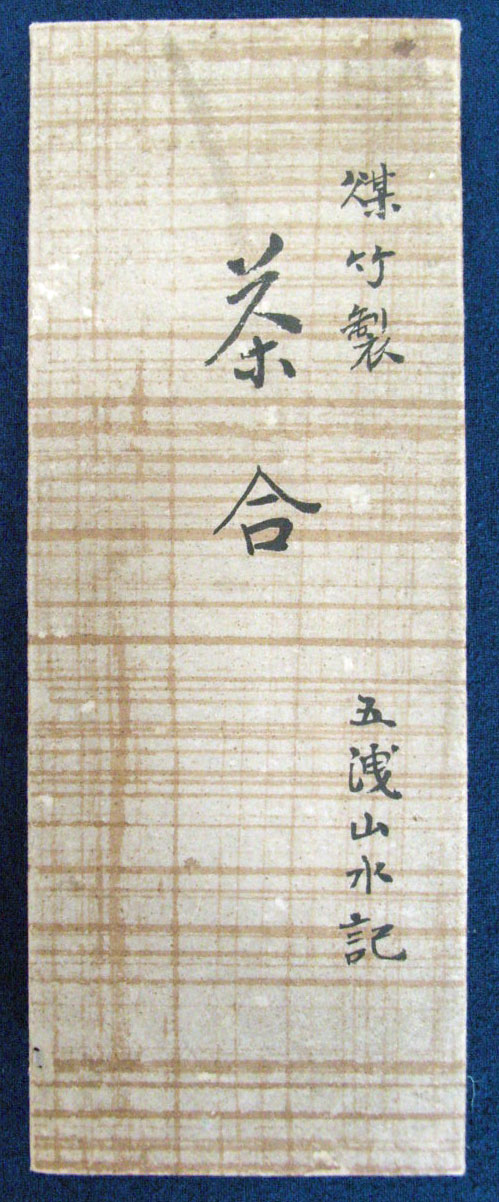 煤竹製　五洩山水記
茶合